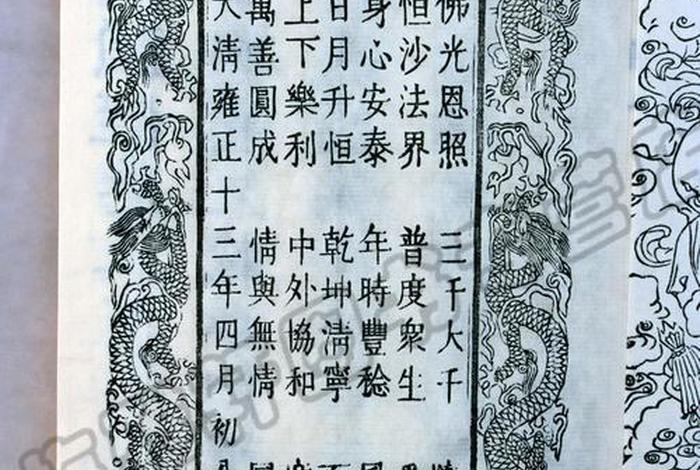 佛光恩照 三千大千
恒沙法界 普度衆生
身心安泰 年時豐稔
日月升恒 乾坤清寧
上下樂利 中外協和
萬善圓成 情與無情
大清雍正十三年四月初八